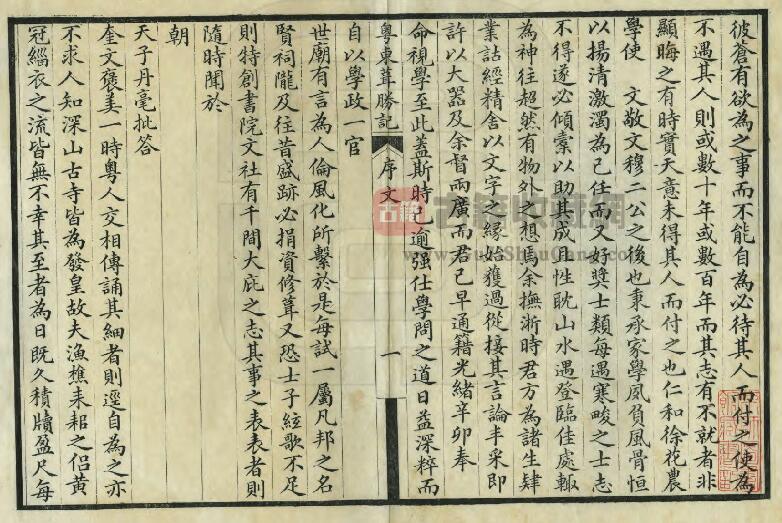 彼蒼有欲為之事而不能自為必待其人而付之使為
不遇其人則或數十年或數百年而其志有不就者非
顯晦之有時實天意未得其人而付之也仁和徐花農
學使 文敬文穆二公之後也秉承家學風負風骨恒
以揚清激濁為己任而又好獎士類每遇寒畯之士志
不得遂必傾橐以助其成且性耽山水遇登臨佳處輙
為神往超然有物外之想焉余撫浙時君方為諸生肄
業詁經精舍以文字之緣始獲過從接其言論丰采即
許以大器及余督兩廣而君已早通籍光緒辛卯奉
命視學至此蓋斯時已逾强仕學問之道日益深粹而
粵東葺勝記 序文 一
自以學政一官
世廟有言為人倫風化所繫於是每試一屬凡邦之名
賢祠隴及往昔盛跡必捐資修葺又恐士子絃歌不足
則特創書院文社有千間大庇之志其事之表表者則
隨時聞於
朝
天子丹毫批答
奎文褒美一時粵人交相傳誦其細者則逕自為之亦
不求人知深山古寺皆為發皇故夫漁樵耒耜之侣黄
冠緇衣之流皆無不幸其至者為日既久積牘盈尺每